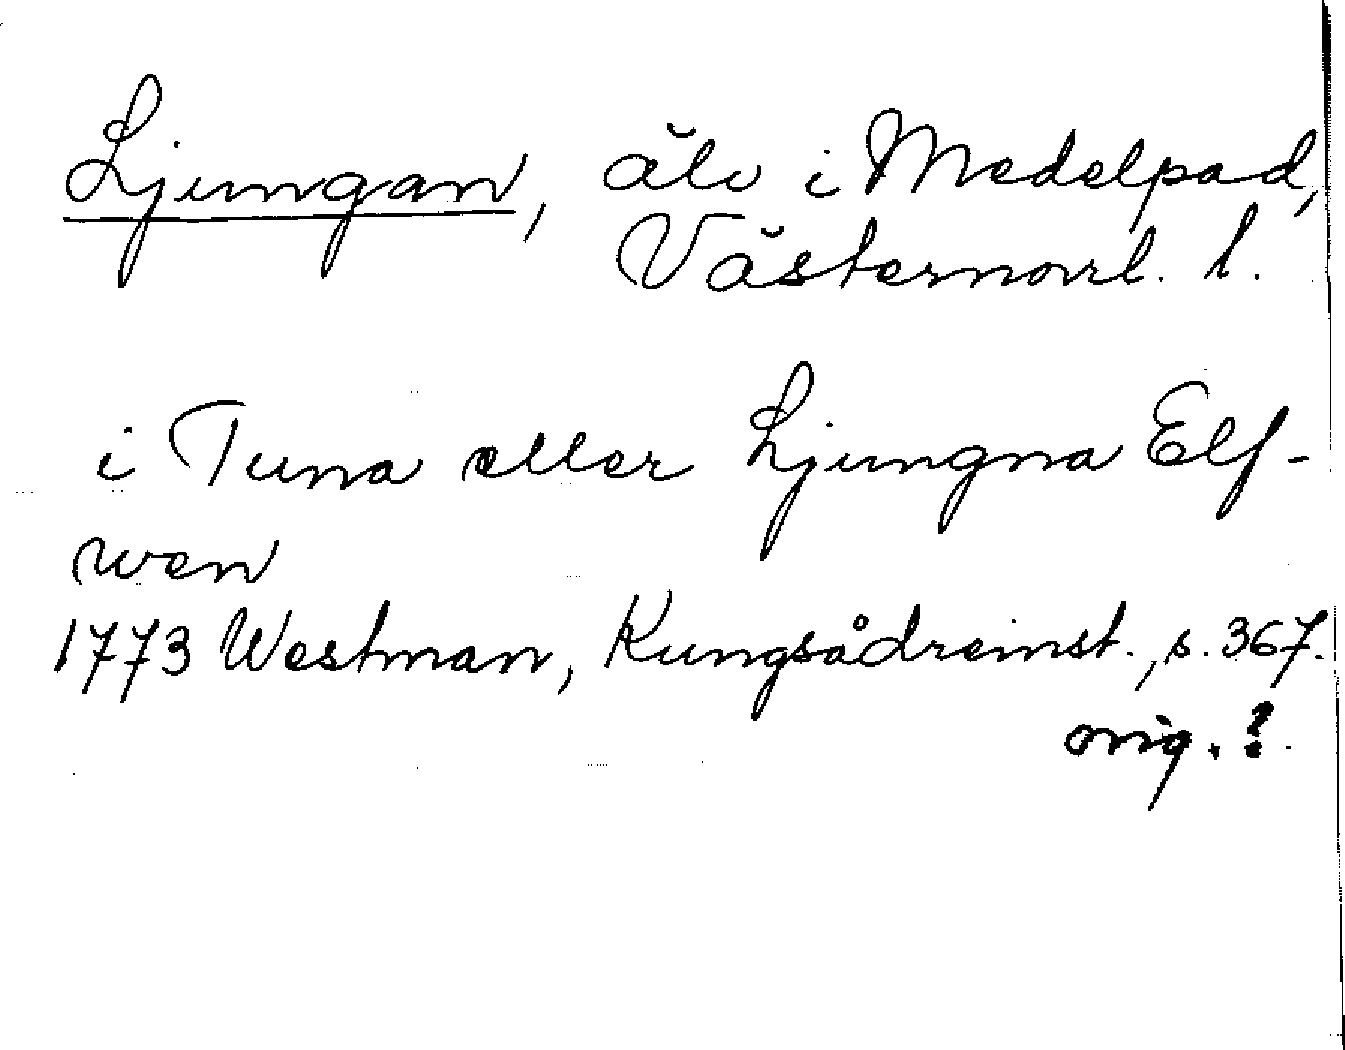 Ljungan, älv i Medelpad,
Västernorrl. l.
i Tuna eller Ljungna Elf-
wen
1773 Westman, Kungsådreinst., s. 367.
orig. ?